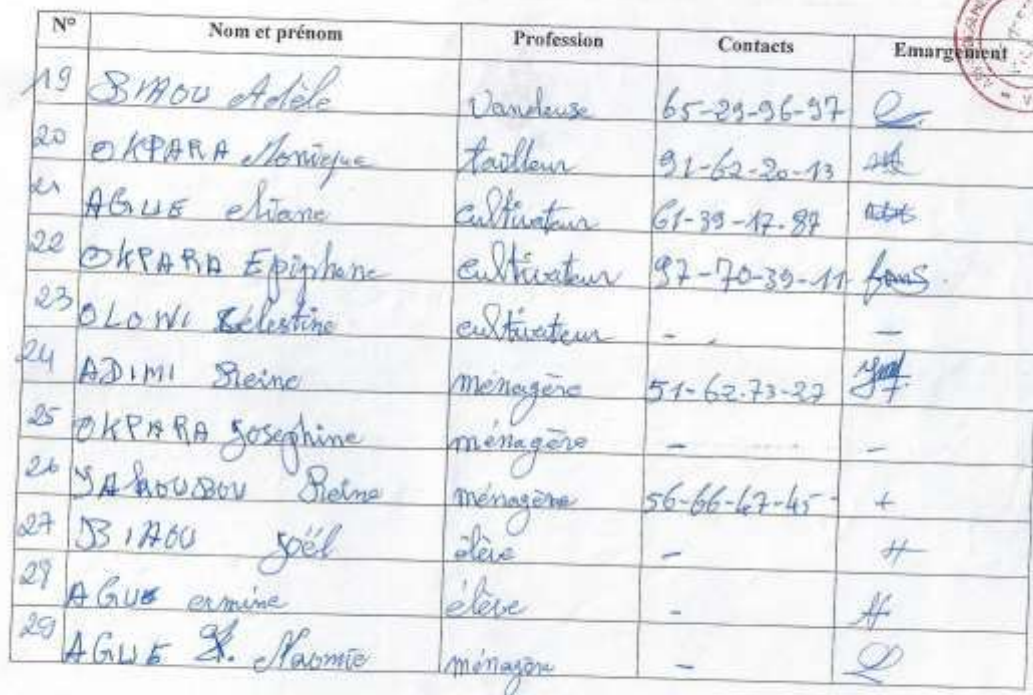 N° Nom et prénom Profession Contacts Emargement
19 BIAOU Adèle Vendeuse 65-29-96-97
20 OKPARA Monique tailleur 91-62-20-13
21 AGUE eliane cultivateur 61-39-17-87
22 OKPARA Epiphane cultivateur 97-70-39-11
23 OLOWI Célestine cultivateur - -
24 ADIMI Reine ménagère 51-62.73-27
25 OKPARA Josephine ménagère - -
26 YAKOUBOU Reine ménagère 56-66-47-45 +
27 BIAOU Joël élève -
28 AGUE ermine élève -
29 AGUE Naomie ménagère -